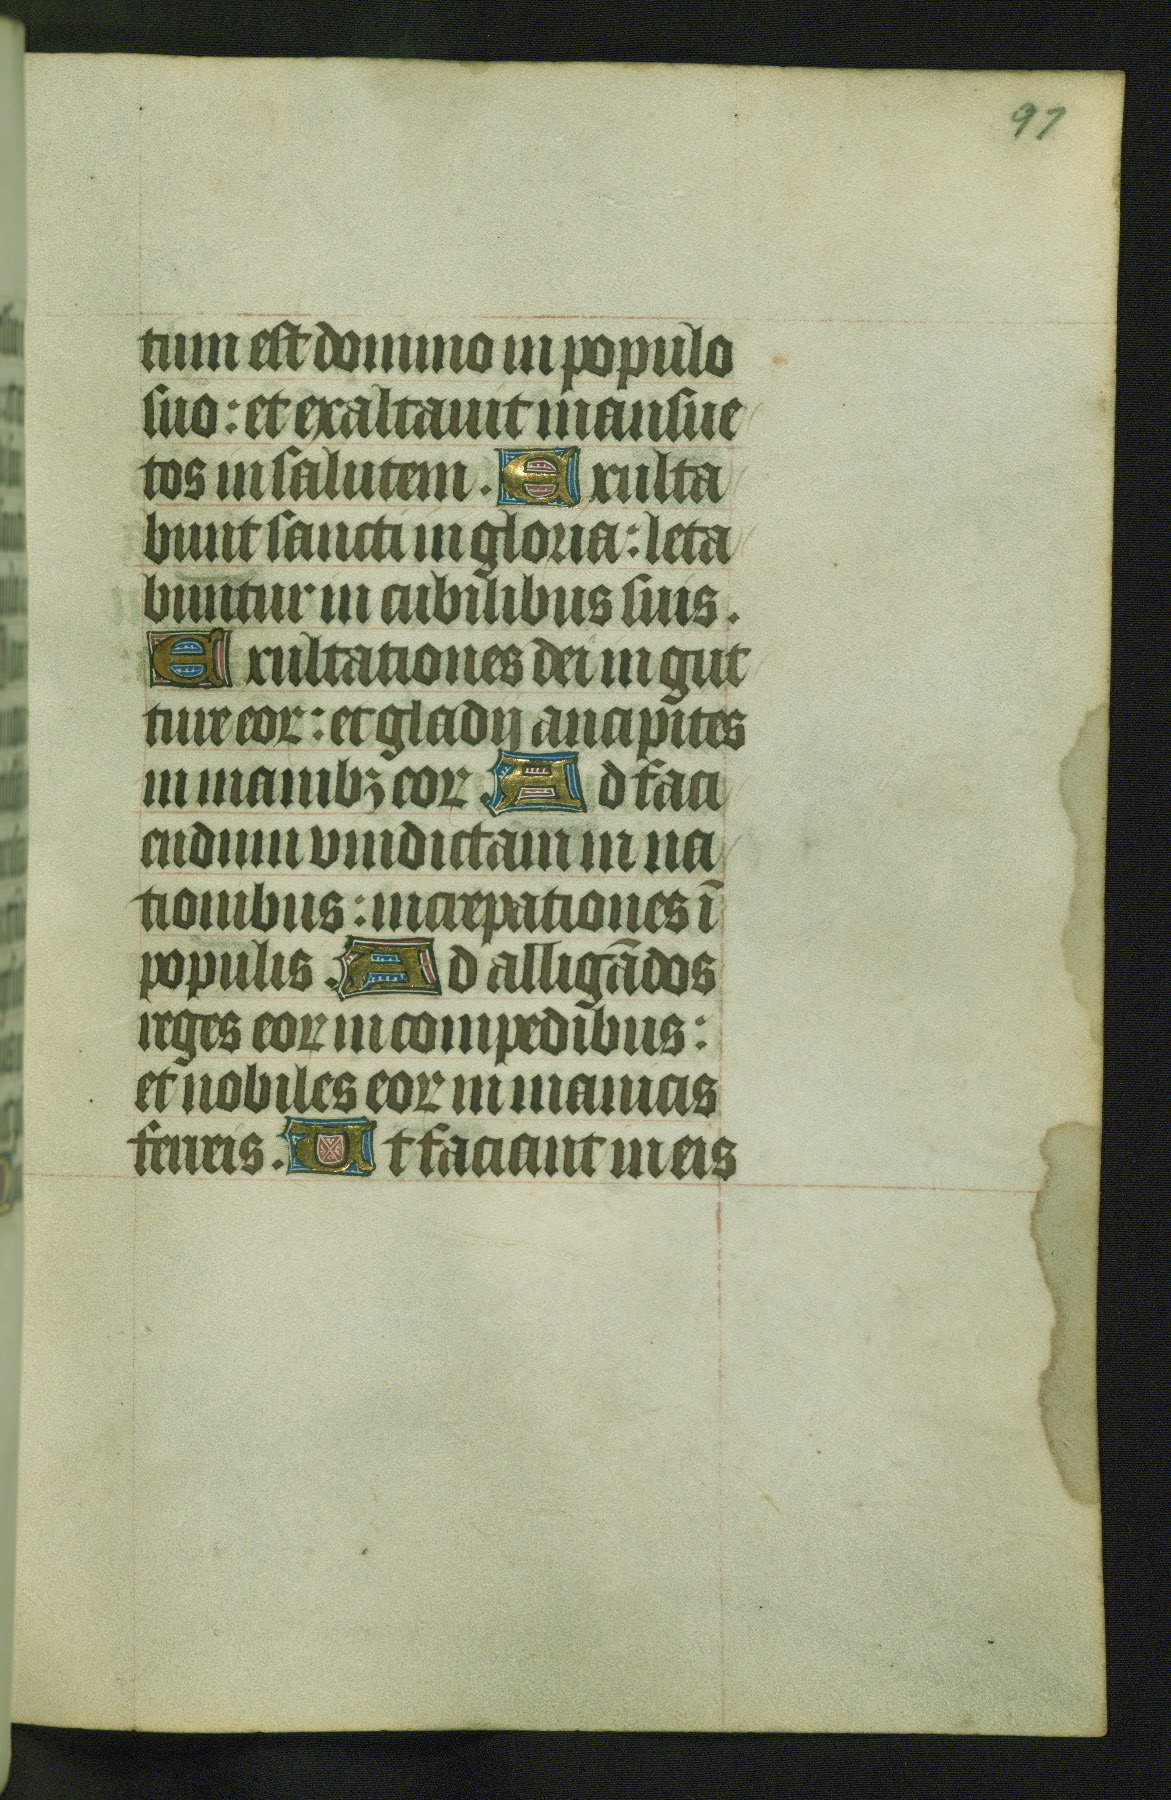 97
tum est domino in populo
suo : et exaltauit mansue
tos in salutem . Exulta
bunt sancti in gloria : leta
buntur in cubilibus suis .
Exultationes dei in gut
ture eoꝝ : et gladij ancipites
in manibꝫ eoꝝ . Ad faci
endum vindictam in na
tionibus : increpationes ī
populis . Ad alligādos
reges eoꝝ in compedibus :
et nobiles eoꝝ in manicis
ferreis . Ut faciant in eis